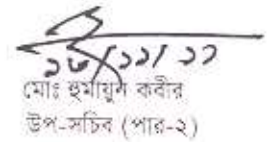 ১৮/১১/১১
মোঃ হুমায়ুন কবীর
উপ-সচিব (পার-২)